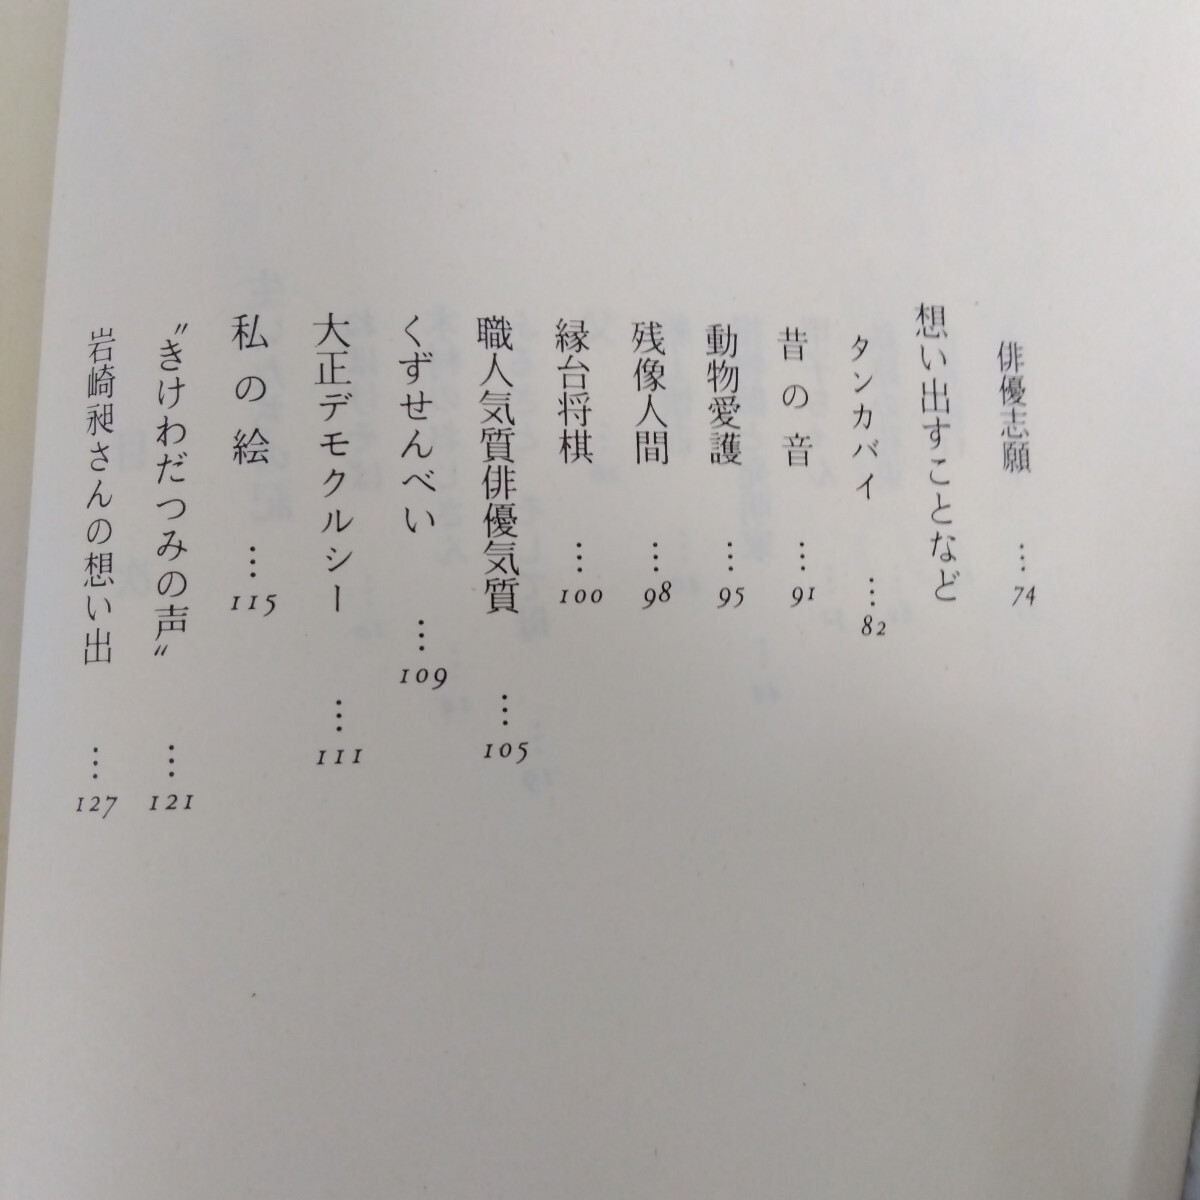 俳優志願 … 74
想い出すことなど
タンカバイ … 82
昔の音 … 91
動物愛護 … 95
残像人間 … 98
縁台将棋 … 100
職人気質俳優気質 … 105
くずせんべい … 109
大正デモクルシー … 111
私の絵 … 115
〝きけわだつみの声〟 … 121
岩崎昶さんの想い出 … 127